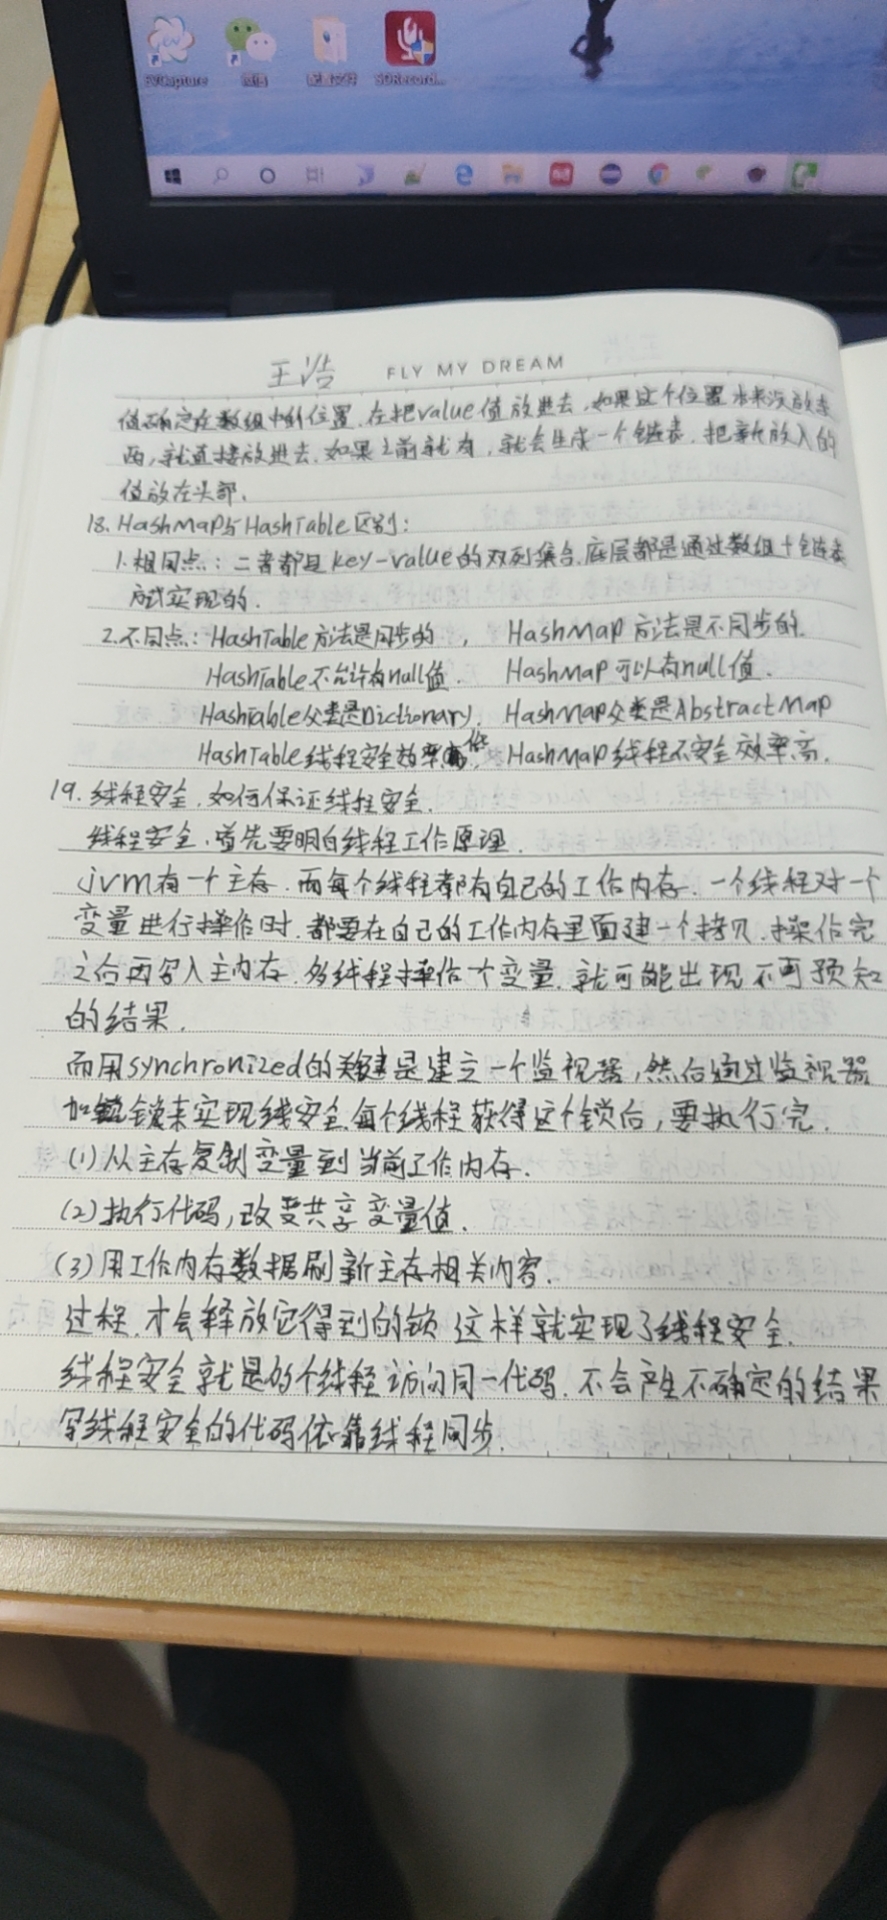 PVCapture 微信 SDRecord...
王浩 FLY MY DREAM
值确定在数组中的位置,在把value值放进去,如果这个位置本来没放东
西,就直接放进去.如果之前就有,就会生成一个链表,把新放入的
值放在头部.
18.HashMap与HashTable区别:
1.相同点:二者都是key-value的双列集合.底层都是通过数组+链表
方式实现的.
2.不同点:HashTable方法是同步的, HashMap方法是不同步的.
HashTable不允许有null值. HashMap可以有null值.
HashTable父类是Dictionary. HashMap父类是AbstractMap
HashTable线程安全效率低, HashMap线程不安全效率高.
19.线程安全,如何保证线程安全.
线程安全.首先要明白线程工作原理.
jvm有一个主存.而每个线程都有自己的工作内存.一个线程对一个
变量进行操作时.都要在自己的工作内存里面建一个拷贝.操作完
之后再写入主内存.多线程操作一个变量.就可能出现不可预知
的结果.
而用synchronized的关键是建立一个监视器,然后通过监视器
加锁来实现线安全.每个线程获得这个锁后,要执行完.
(1)从主存复制变量到当前工作内存.
(2)执行代码,改变共享变量值.
(3)用工作内存数据刷新主存相关内容.
过程.才会释放它得到的锁 这样就实现了线程安全.
线程安全就是的个线程访问同一代码.不会产生不确定的结果
写线程安全的代码依靠线程同步.